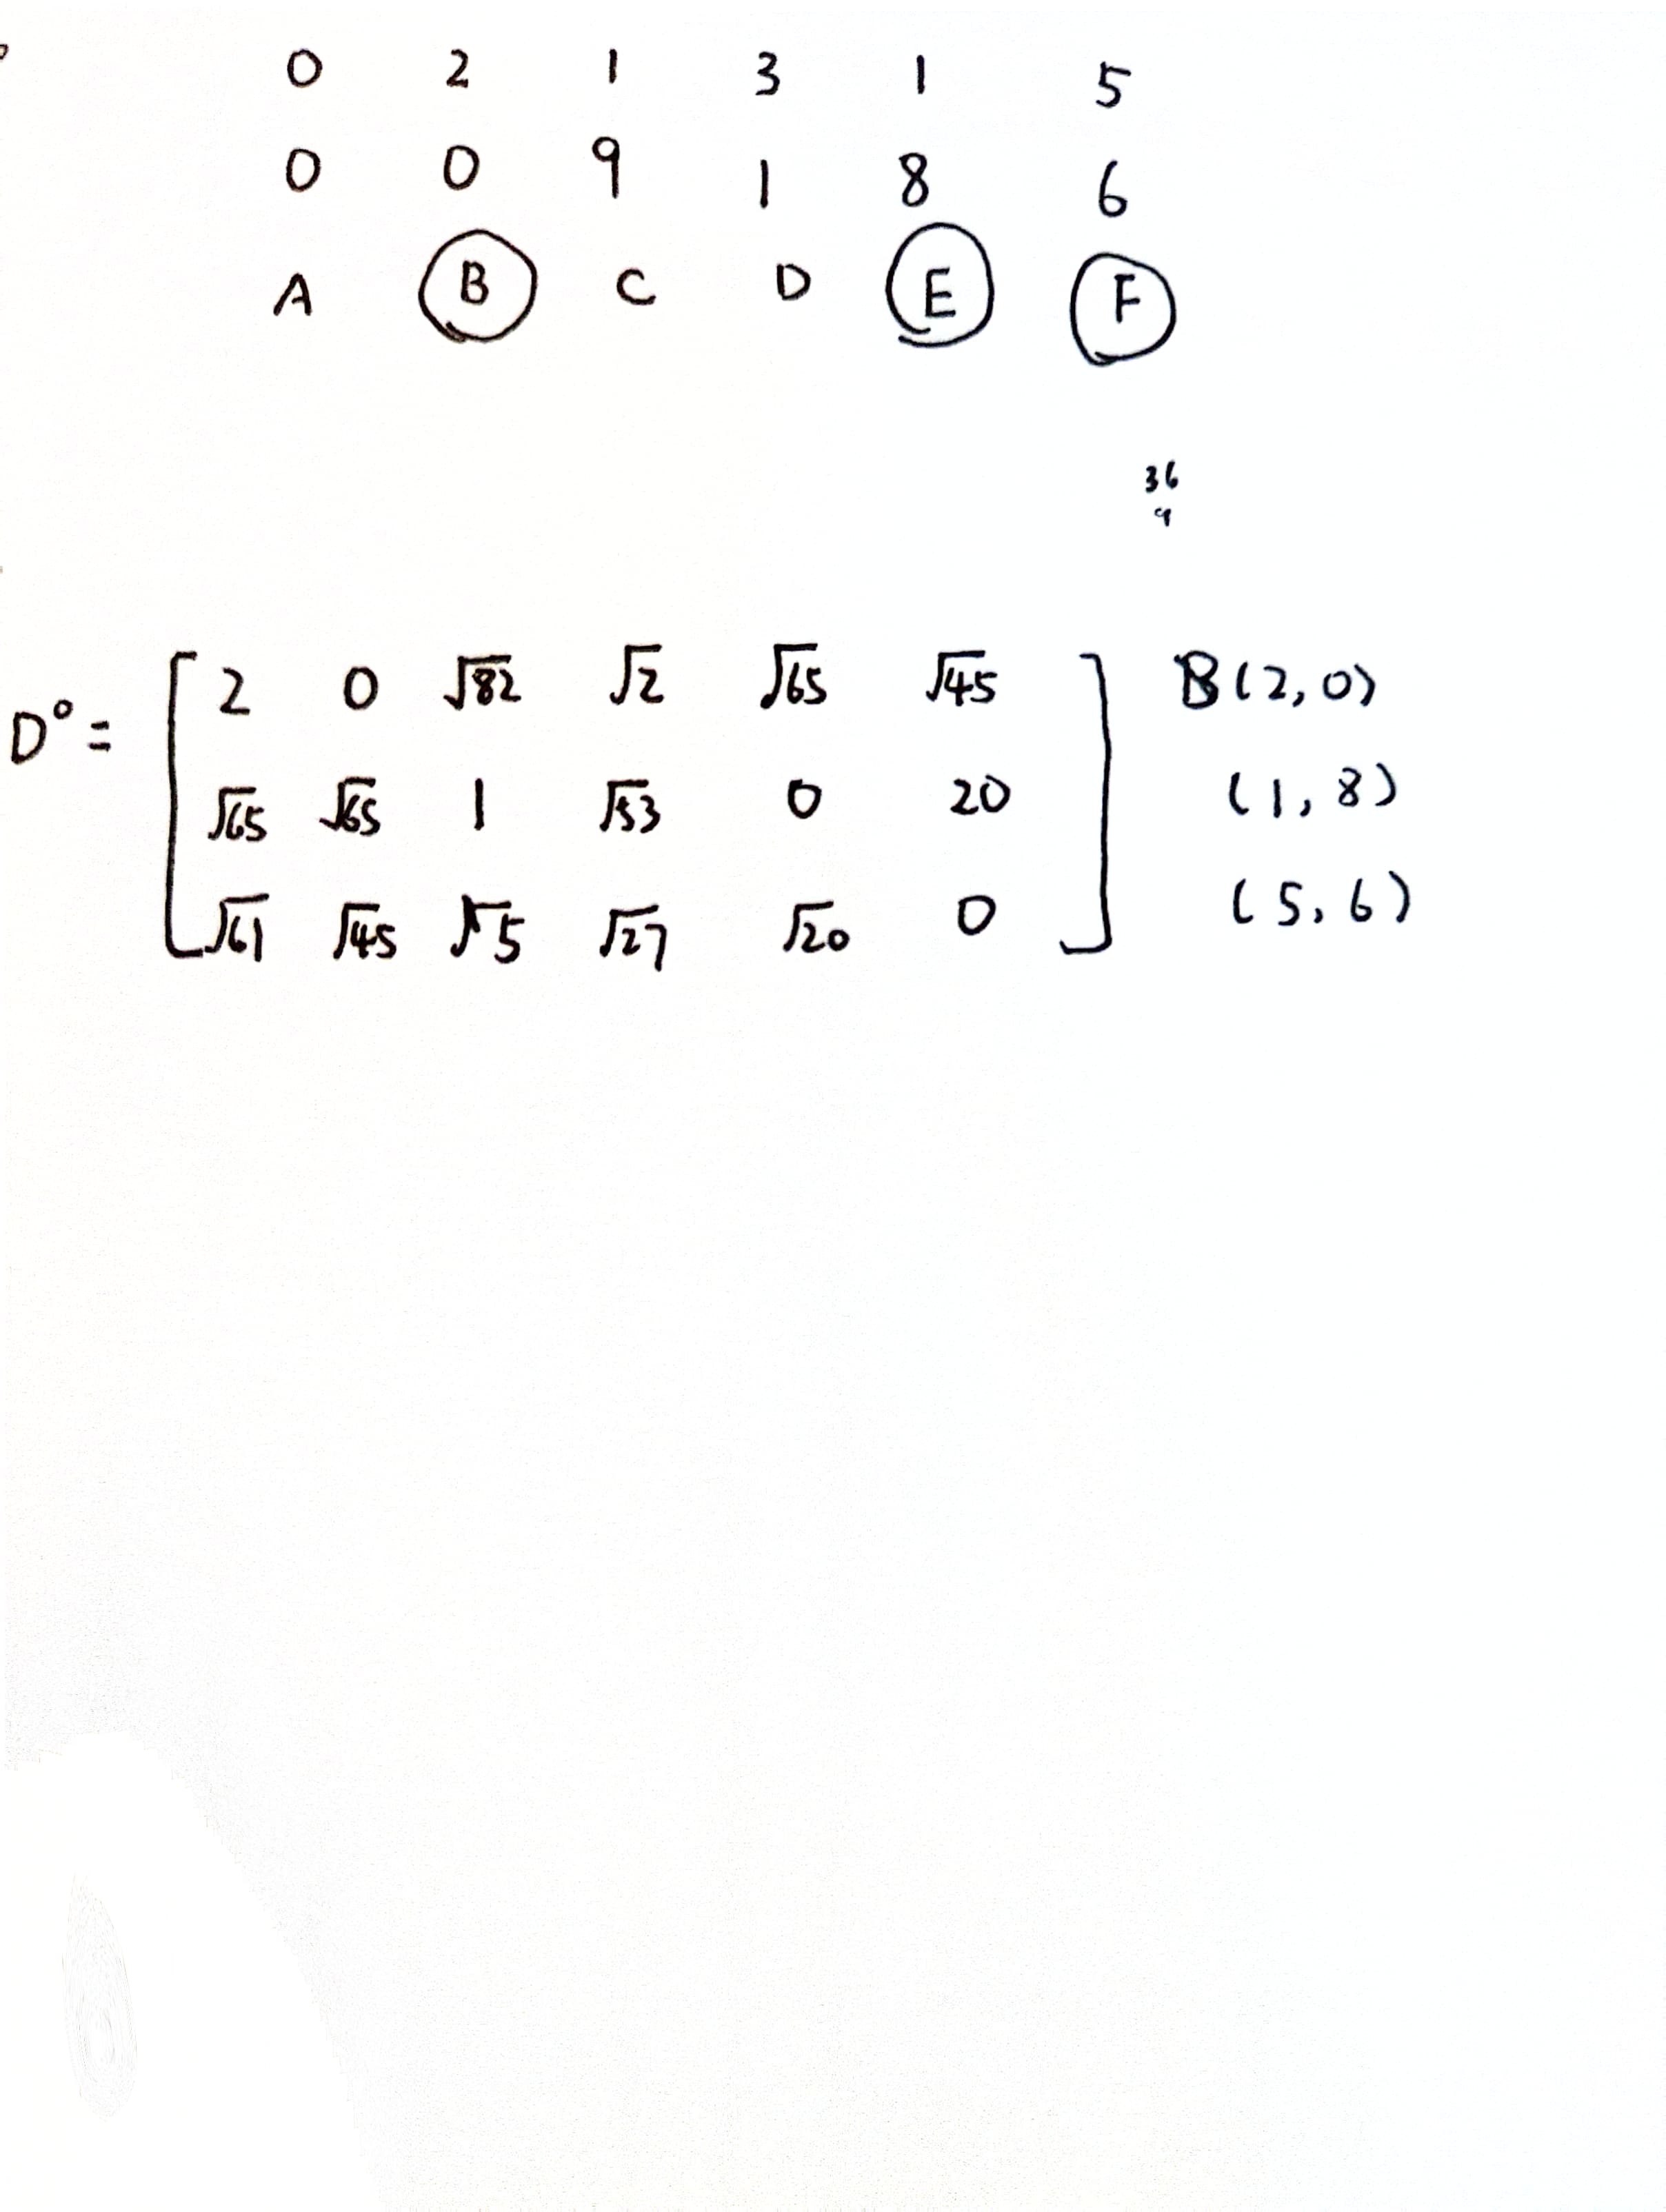 0 2 1 3 1 5
0 0 9 1 8 6
A B C D E F
36
9
D⁰ = [ 2 0 √82 √2 √65 √45 ] B(2,0)
√65 √65 1 √53 0 20 (1,8)
√61 √45 √5 √27 √20 0 (5,6)